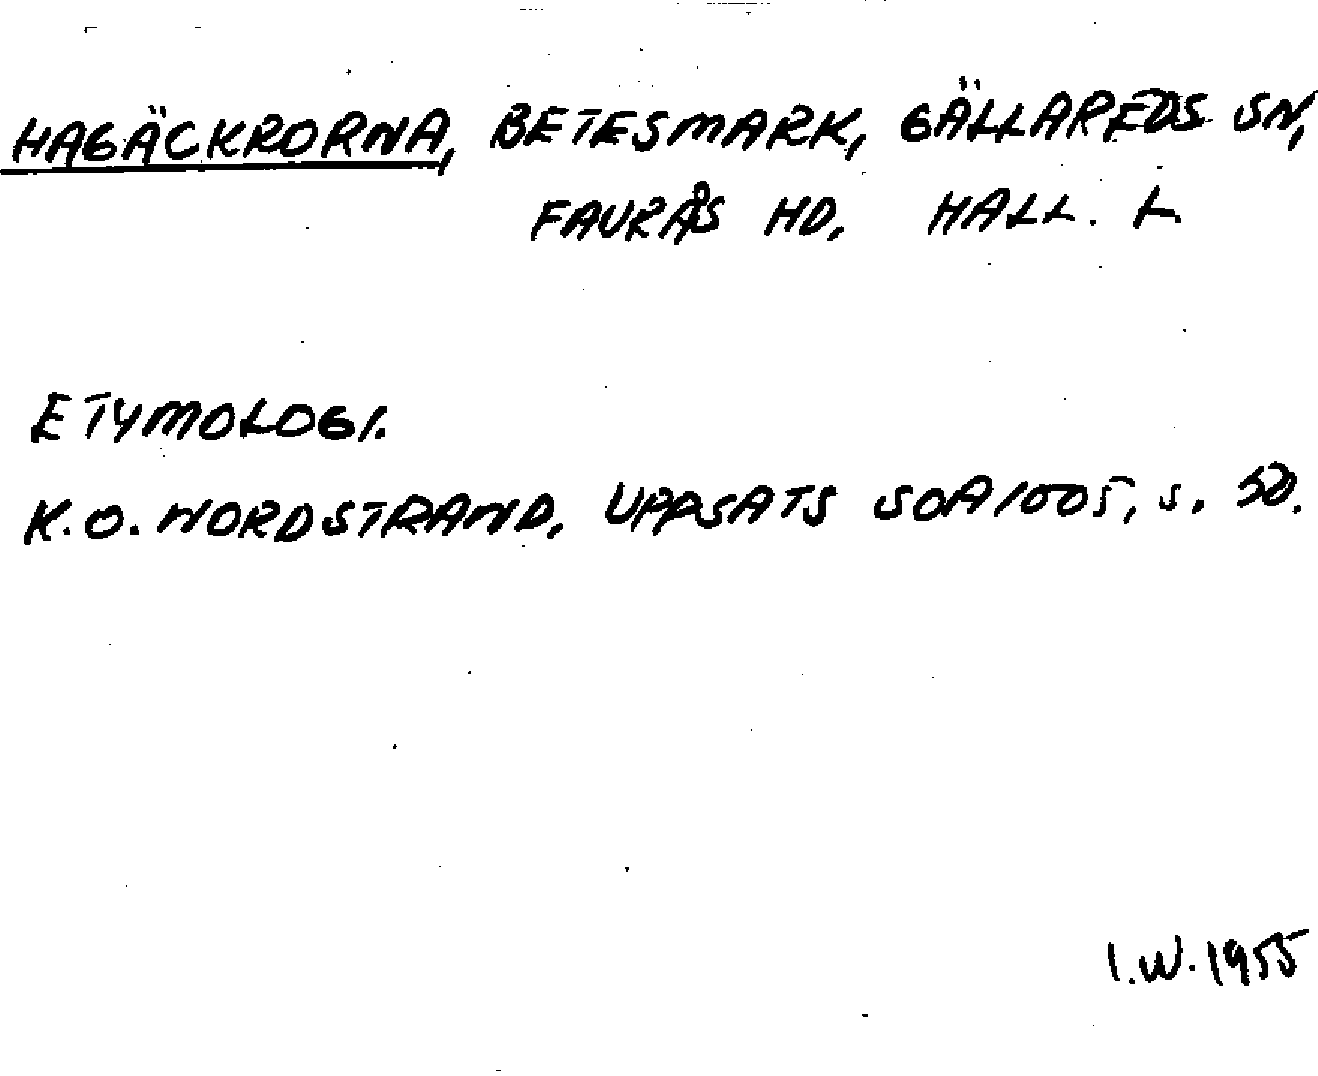 HAGÄCKRORNA, BETESMARK, GÄLLAREDS SN,
FAURÅS HD, HALL. L
ETYMOLOGI.
K.O. NORDSTRAND, UPPSATS SOA 1005, S. 50.
I.W. 1955